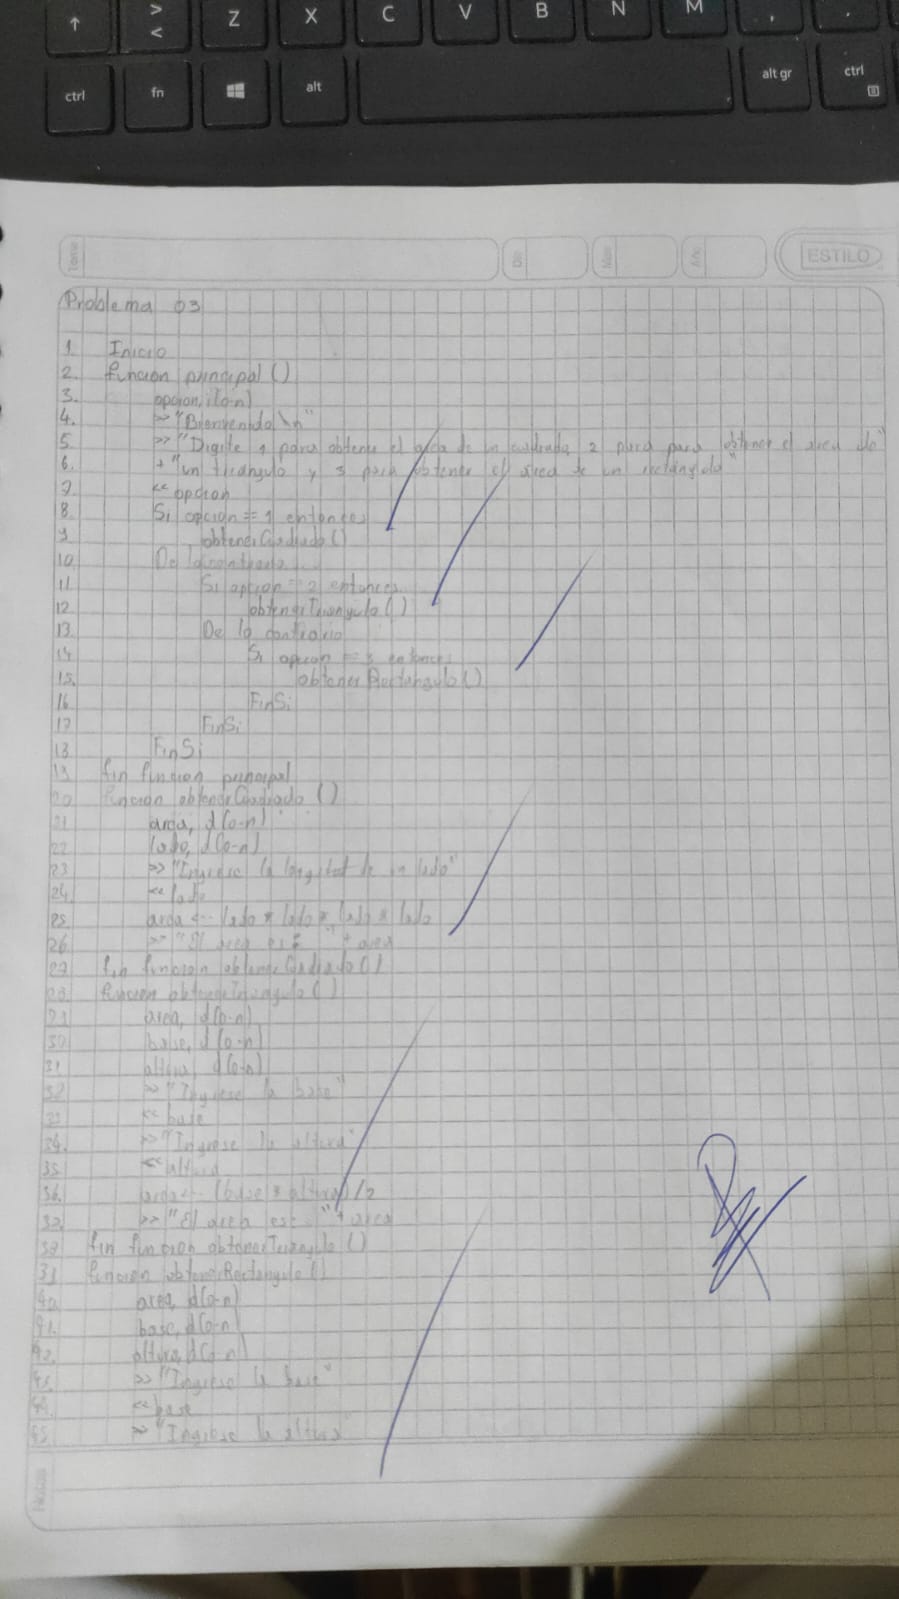 ↑ > < Z X C V B N M , .
ctrl fn alt alt gr ctrl
Tema Día Mes Año ESTILO
Problema 03
1. Inicio
2. función principal ()
3. opcion, i(0-n)
4. >> "Bienvenido \n"
5. >> "Digite 1 para obtener el area de un cuadrado, 2 para para obtener el area de"
6. + "un triángulo y 3 para obtener el área de un rectángulo"
7. << opcion
8. Si opcion == 1 entonces
9. obtenerCuadrado()
10. De lo contrario
11. Si opcion == 2 entonces
12. obtenerTriangulo()
13. De lo contrario
14. Si opcion == 3 entonces
15. obtenerRectangulo()
16. FinSi
17 FinSi
18. FinSi
19. fin funcion principal
20. funcion obtenerCuadrado ()
21 area, d(0-n)
22 lado, d(0-n)
23 >> "Ingrese la longitud de un lado"
24. << lado
25. area <-- lado * lado * lado * lado
26 >> "El area es: " + area
27 fin funcion obtenerCuadrado()
28 funcion obtenerTriangulo()
29 area, d(0-n)
30 base, d(0-n)
31. altura, d(0-n)
32 >> "Ingrese la base"
33 << base
34. >> "Ingrese la altura"
35 << altura
36. area <-- (base * altura)/2
37. >> "El area es: " + area
38 fin funcion obtenerTriangulo ()
39 funcion obtenerRectangulo()
40. area, d(0-n)
41. base, d(0-n)
42. altura, d(0-n)
43. >> "Ingrese la base"
44. << base
45. >> "Ingrese la altura"
Notas